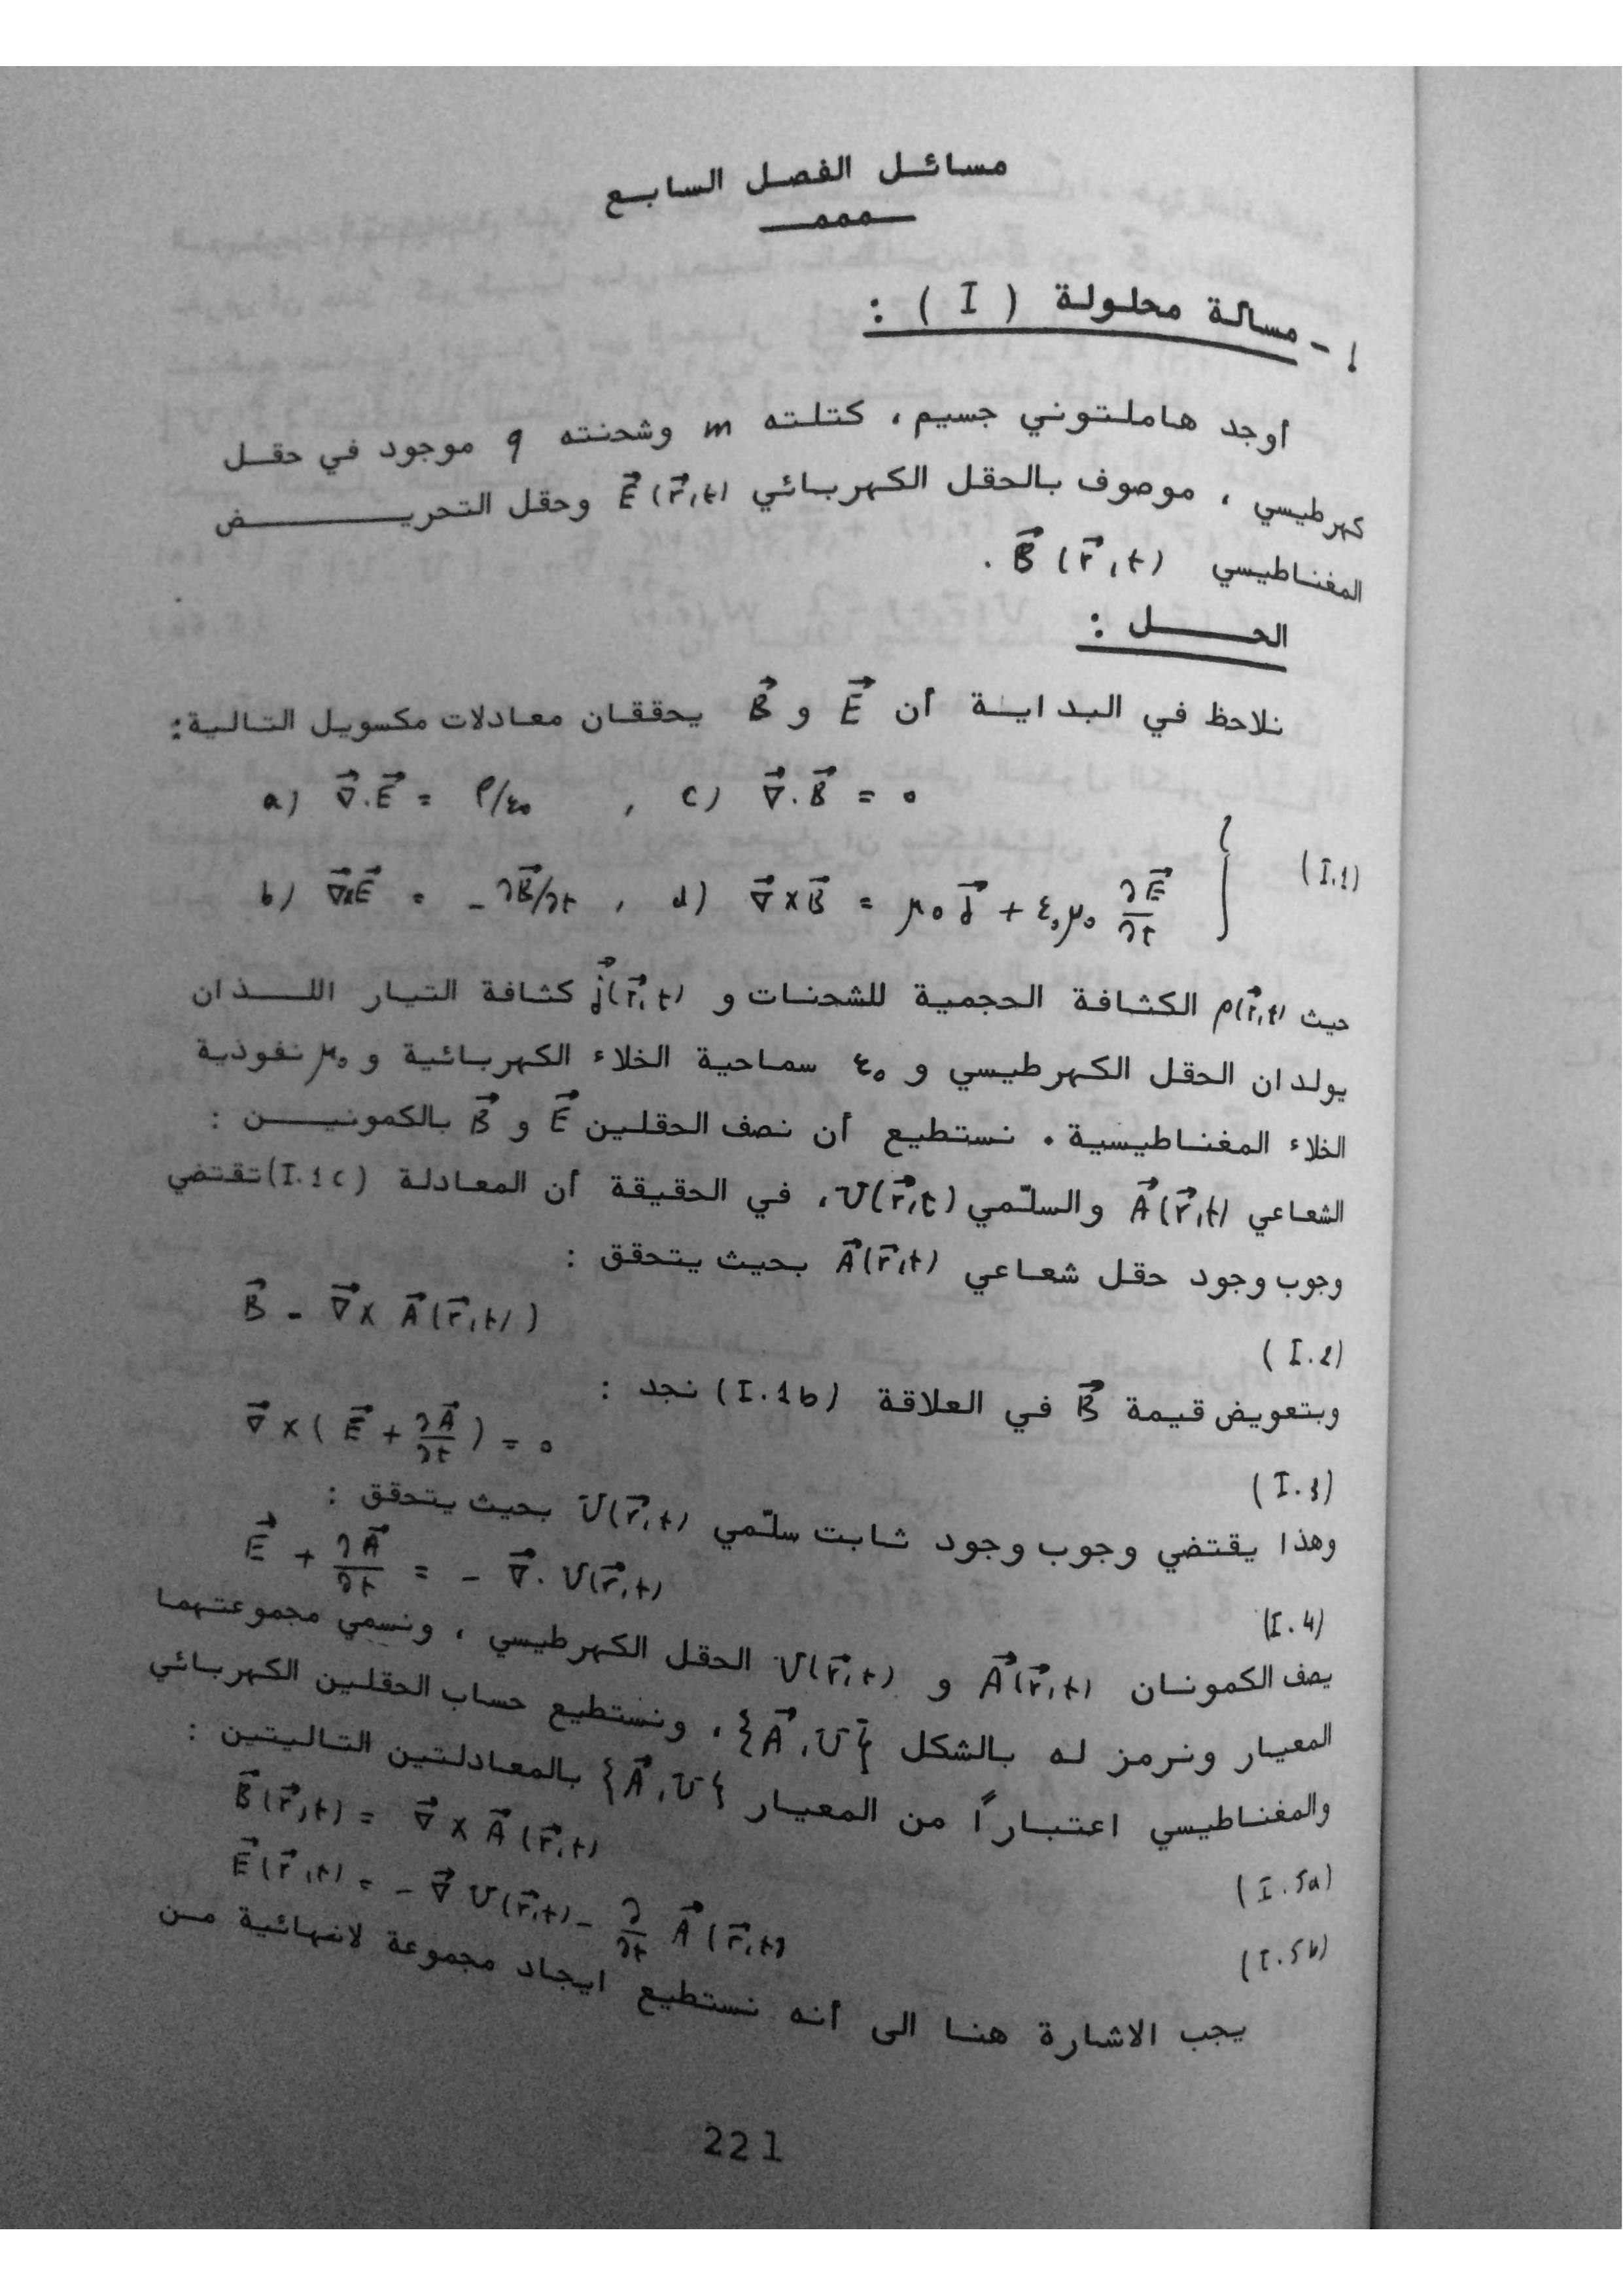 مسائل الفصل السابع
١ - مسالة محلولة ( I ) :
أوجد هاملتوني جسيم ، كتلته m وشحنته q موجود في حقل
كهرطيسي ، موصوف بالحقل الكهربائي E⃗(r⃗,t) وحقل التحريض
المغناطيسي B⃗(r⃗,t) .
الحل :
نلاحظ في البداية أن E⃗ و B⃗ يحققان معادلات مكسويل التالية :
a) ∇⃗.E⃗ = ρ/ε₀ , c) ∇⃗.B⃗ = 0
b) ∇⃗×E⃗ = -∂B⃗/∂t , d) ∇⃗×B⃗ = μ₀j⃗ + ε₀μ₀ ∂E⃗/∂t } (I.1)
حيث ρ(r⃗,t) الكثافة الحجمية للشحنات و j⃗(r⃗,t) كثافة التيار اللذان
يولدان الحقل الكهرطيسي و ε₀ سماحية الخلاء الكهربائية و μ₀ نفوذية
الخلاء المغناطيسية . نستطيع أن نصف الحقلين E⃗ و B⃗ بالكمونين :
الشعاعي A⃗(r⃗,t) والسلّمي U(r⃗,t) ، في الحقيقة أن المعادلة (I.1c) تقتضي
وجوب وجود حقل شعاعي A⃗(r⃗,t) بحيث يتحقق :
B⃗ = ∇⃗× A⃗(r⃗,t) (I.2)
وبتعويض قيمة B⃗ في العلاقة (I.1b) نجد :
∇⃗×( E⃗ + ∂A⃗/∂t ) = 0 (I.3)
وهذا يقتضي وجوب وجود ثابت سلّمي U(r⃗,t) بحيث يتحقق :
E⃗ + ∂A⃗/∂t = - ∇⃗. U(r⃗,t) (I.4)
يصف الكمونان A⃗(r⃗,t) و U(r⃗,t) الحقل الكهرطيسي ، ونسمي مجموعتهما
المعيار ونرمز له بالشكل {A⃗,U} ، ونستطيع حساب الحقلين الكهربائي
والمغناطيسي اعتباراً من المعيار {A⃗,U} بالمعادلتين التاليتين :
B⃗(r⃗,t) = ∇⃗ × A⃗(r⃗,t) (I.5a)
E⃗(r⃗,t) = - ∇⃗ U(r⃗,t) - ∂/∂t A⃗(r⃗,t) (I.5b)
يجب الاشارة هنا الى أنه نستطيع ايجاد مجموعة لانهائية من
221